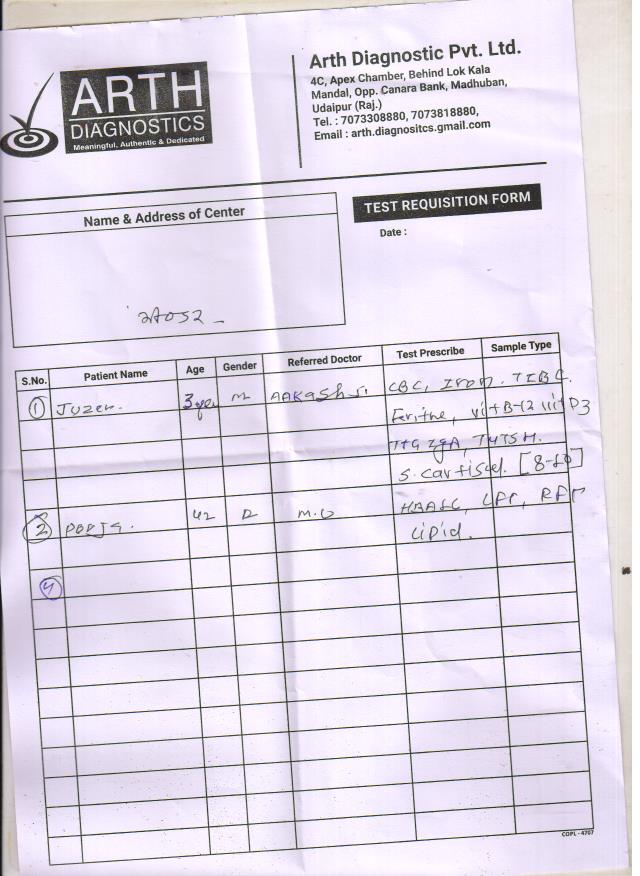 ARTH
DIAGNOSTICS
Meaningful, Authentic & Dedicated
Arth Diagnostic Pvt. Ltd.
4C, Apex Chamber, Behind Lok Kala
Mandal, Opp. Canara Bank, Madhuban,
Udaipur (Raj.)
Tel. : 7073308880, 7073818880,
Email : arth.diagnositcs.gmail.com
Name & Address of Center
TEST REQUISITION FORM
Date :
S.No. Patient Name Age Gender Referred Doctor Test Prescribe Sample Type
1 Juzer. 3 M AAKash CBC, Iron. TIBC.
vit B-12 vit D3
TTG IgA,
S. [8-10]
2 42 M.D LFT, RFT
Lipid.
4
COPL - 4707